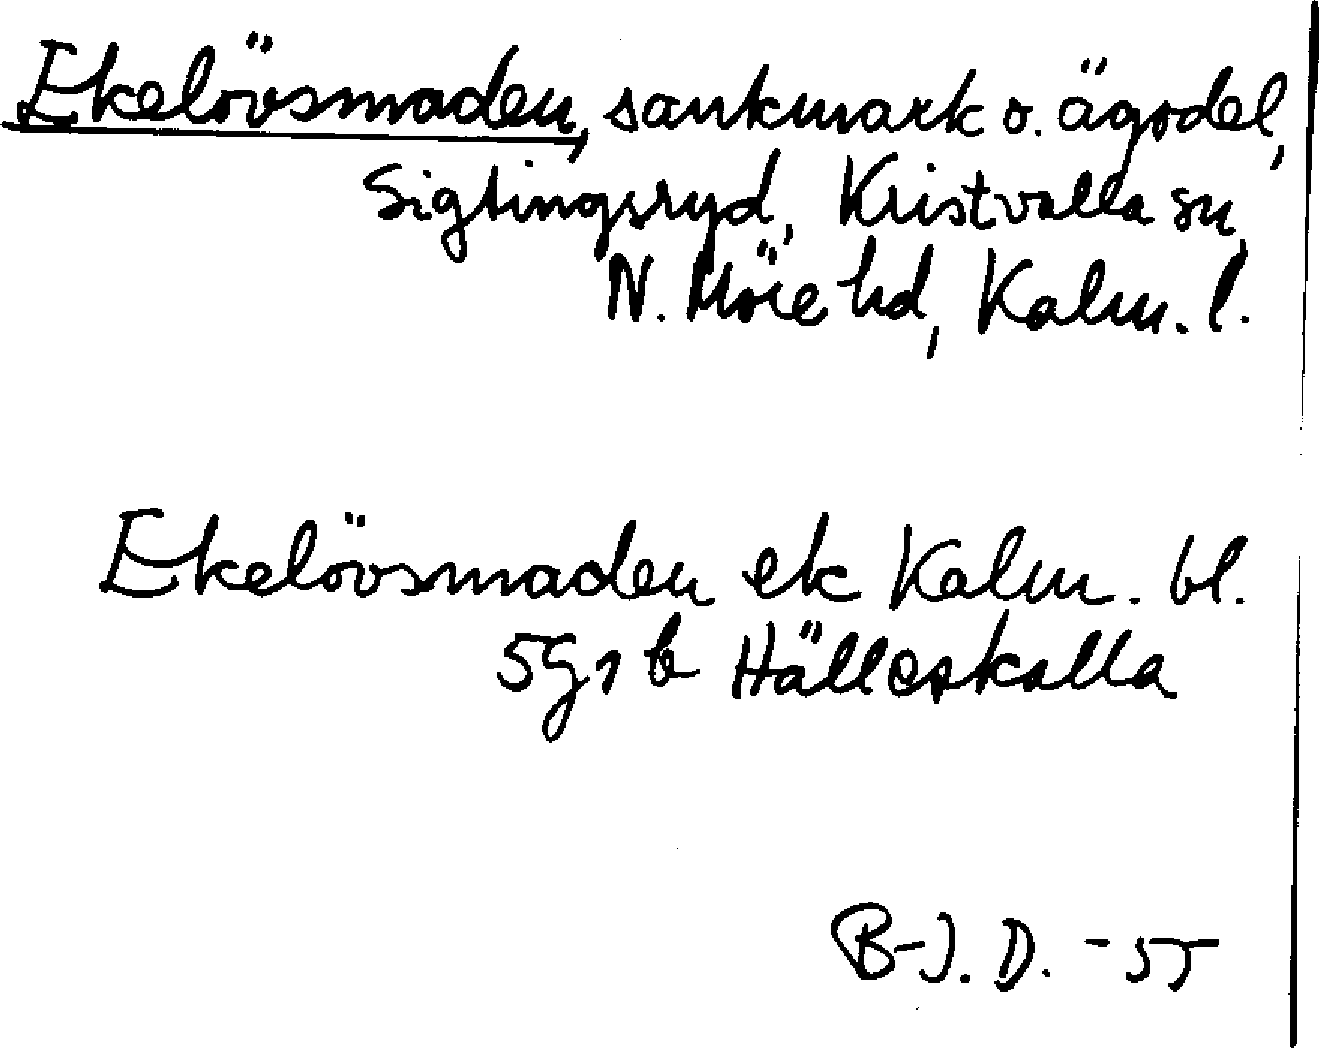 Ekelövsmaden, sankmark o. ägodel,
Siglingsryd, Kristvalla sn,
N. Möre hd, Kalm. l.
Ekelövsmaden ek Kalm. bl.
5G1b Hälleskalla
B-J. D. -55